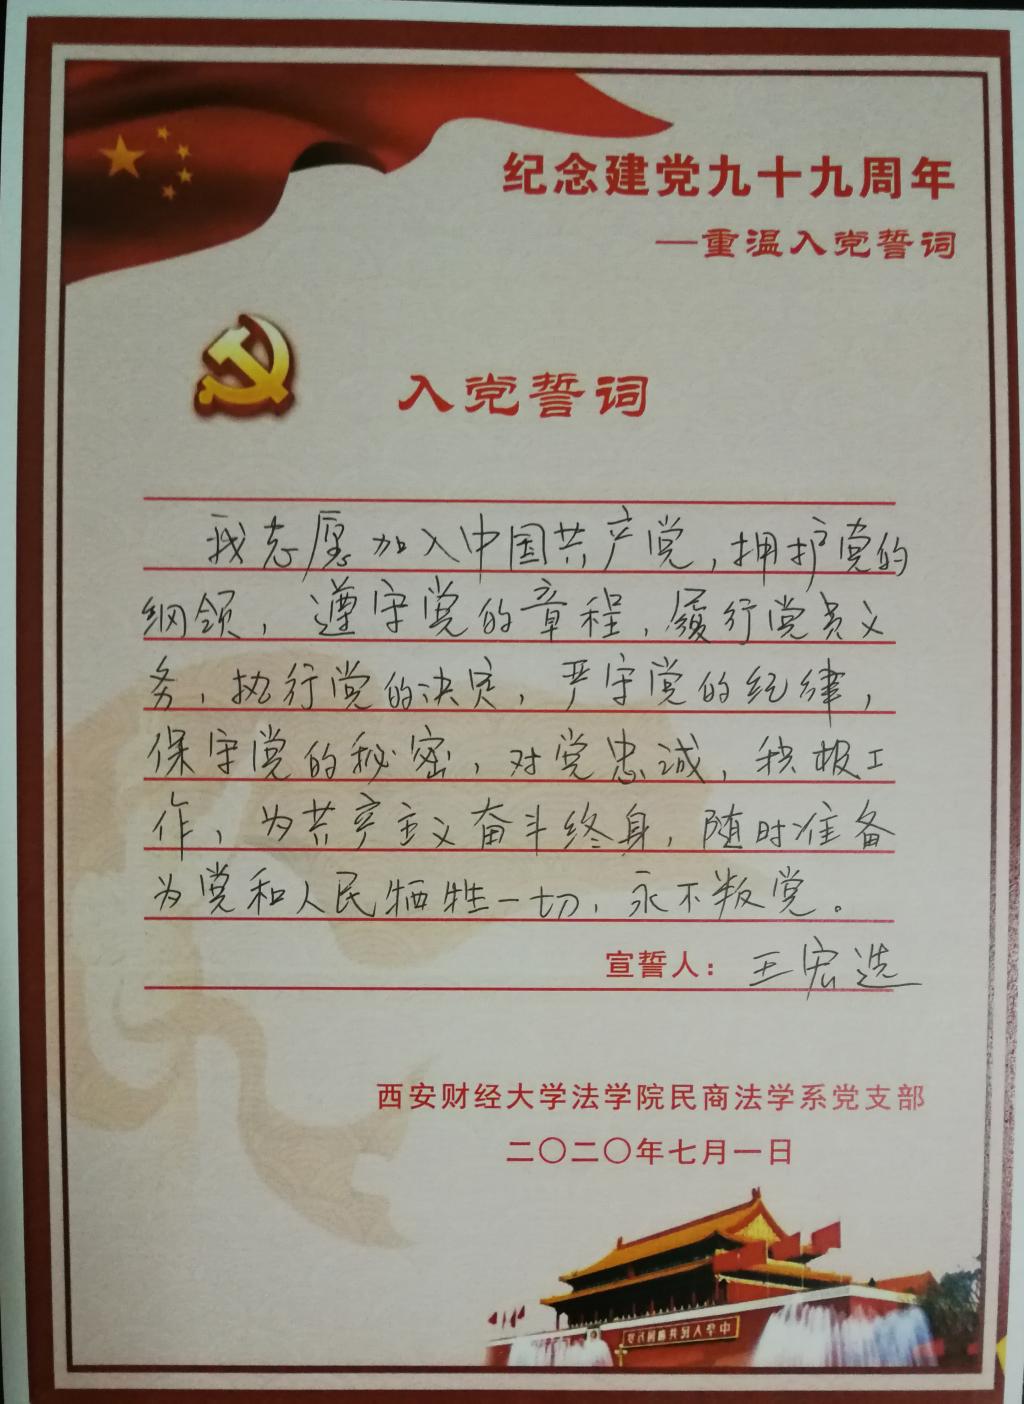 纪念建党九十九周年
—重温入党誓词
入党誓词
我志愿加入中国共产党，拥护党的
纲领，遵守党的章程，履行党员义
务，执行党的决定，严守党的纪律，
保守党的秘密，对党忠诚，积极工
作，为共产主义奋斗终身，随时准备
为党和人民牺牲一切，永不叛党。
宣誓人：王宏选
西安财经大学法学院民商法学系党支部
二〇二〇年七月一日
中华人民共和国万岁